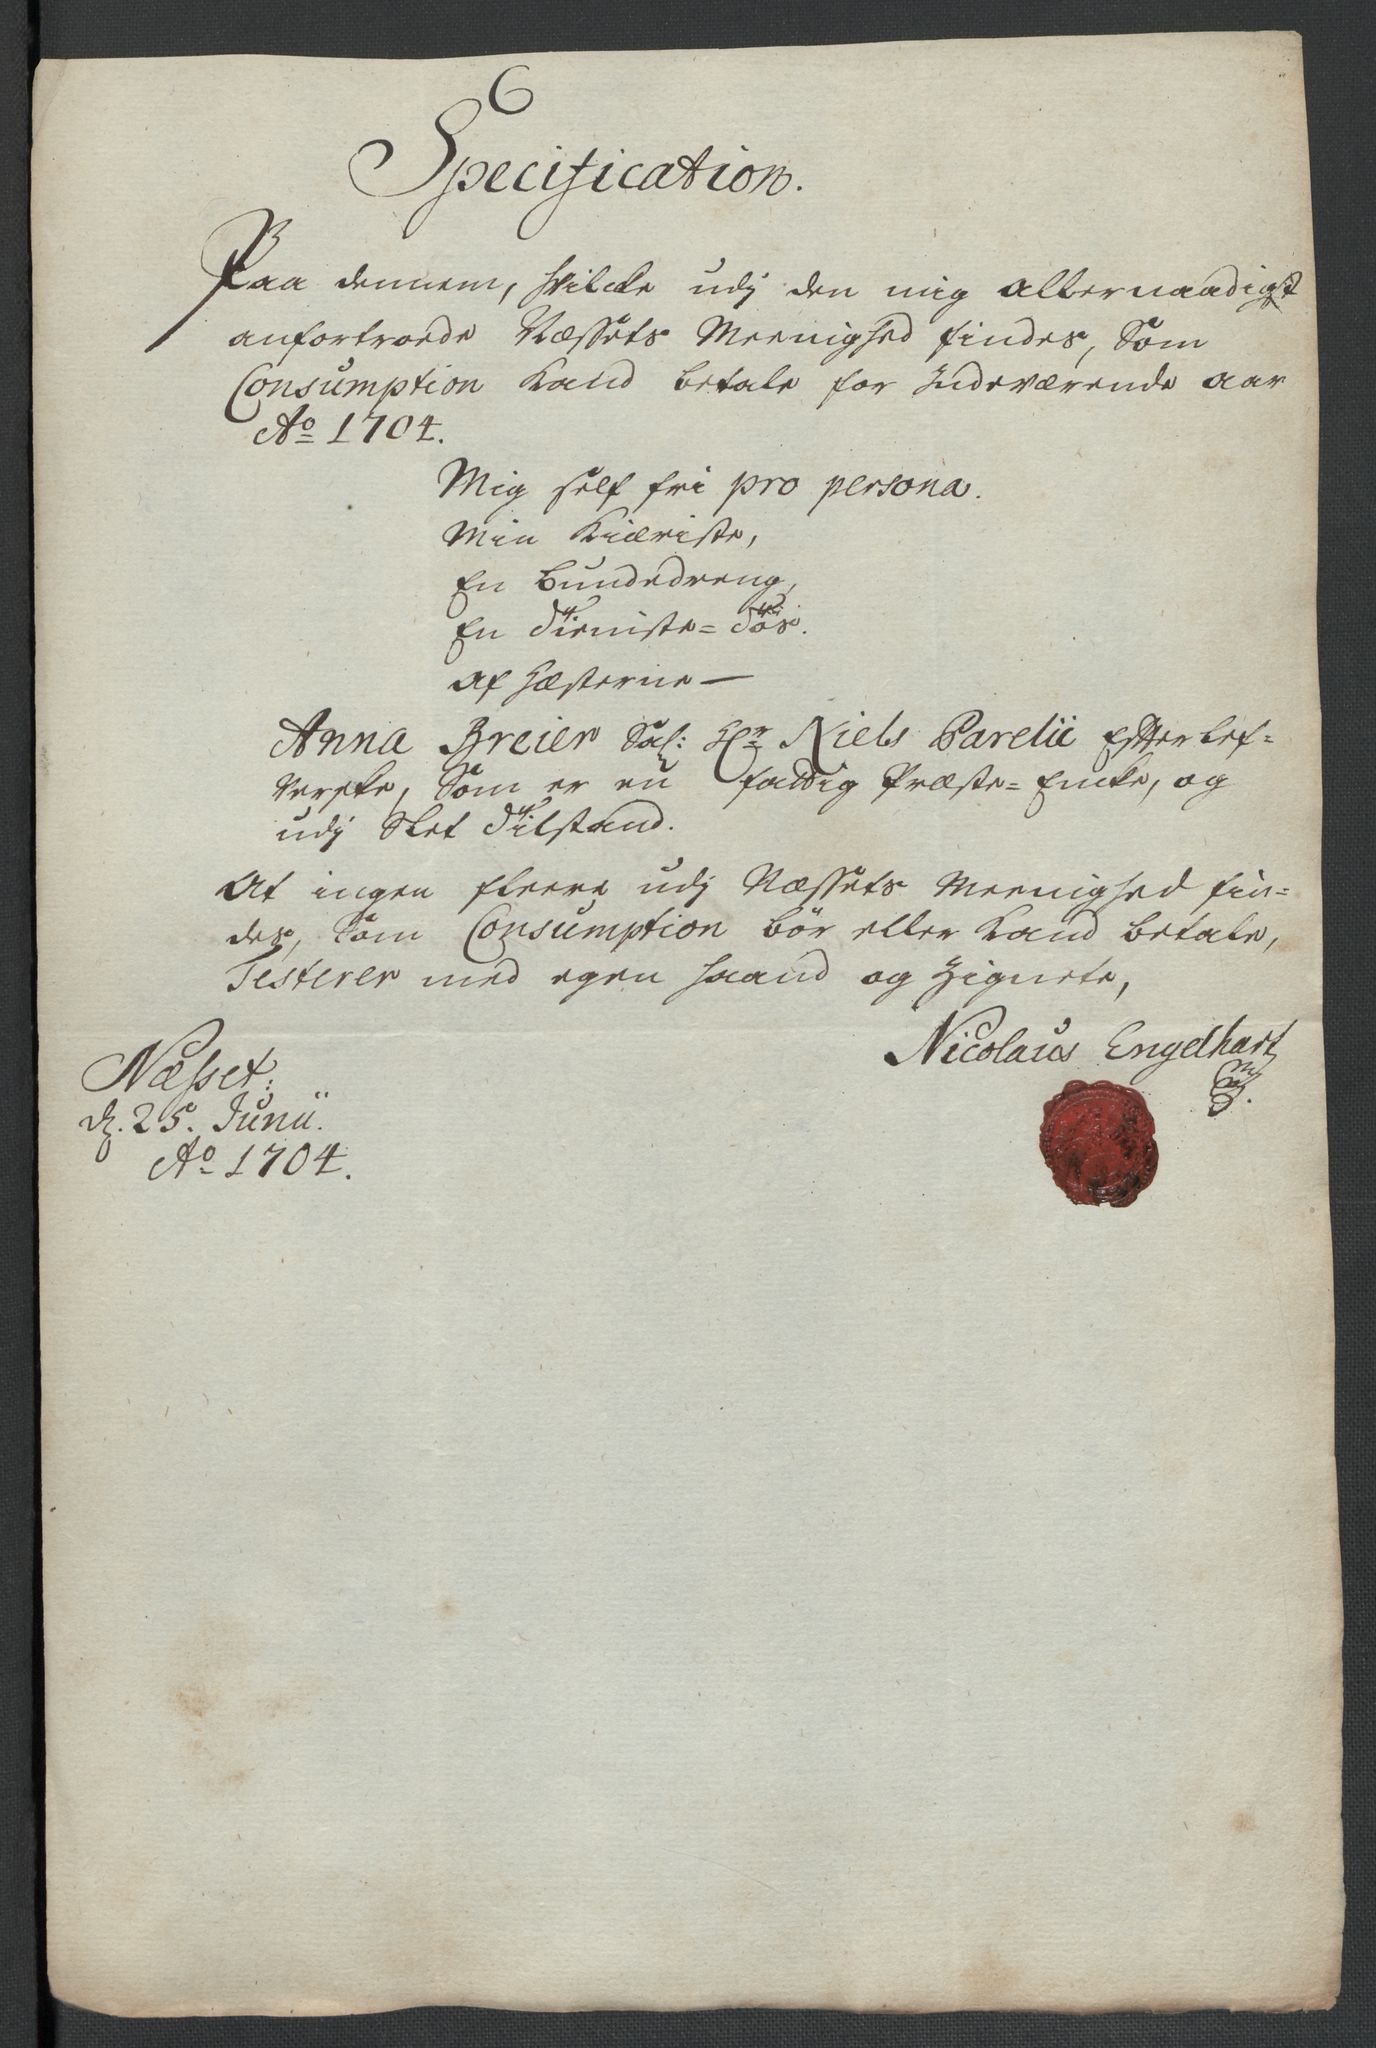 6
Specification.
Paa dennem, hvilcke udj den mig allernaadigst
anfortroede Næssets Meenighed findes, Som
Consumption kand betale for Indeværende aar
Ao 1704.
Mig self fri pro persona.
Min Kiæriste,
En bundedreng,
En Tieniste=Tös.
af Hæsterne —
Anna Breier Sal: Hr Niels Parelii Effterlef=
verske, Som er en fattig Præste=Encke, og
udj Slet Tilstand.
At ingen fleere udj Næssets Meenighed fin=
des, Som Consumption bör eller kand betale,
Testerer med egen haand og Zignete,
Nicolaus Engelhart
Næsset:
d. 25. Junii.
Ao 1704.